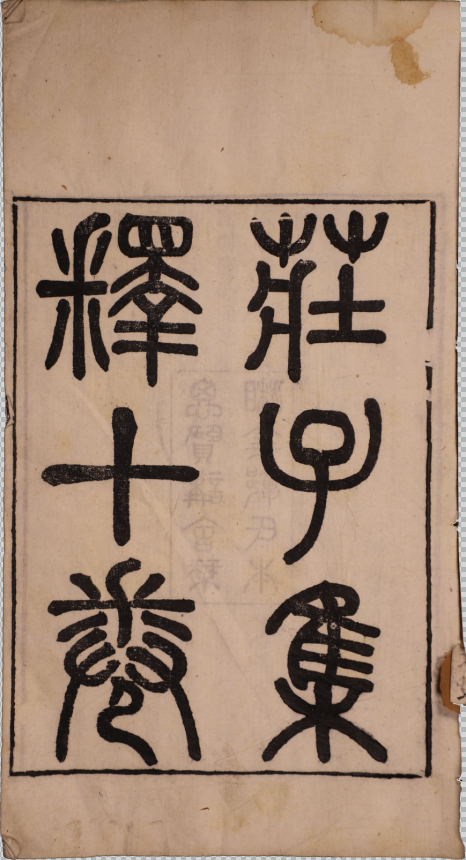 莊子集
釋十卷